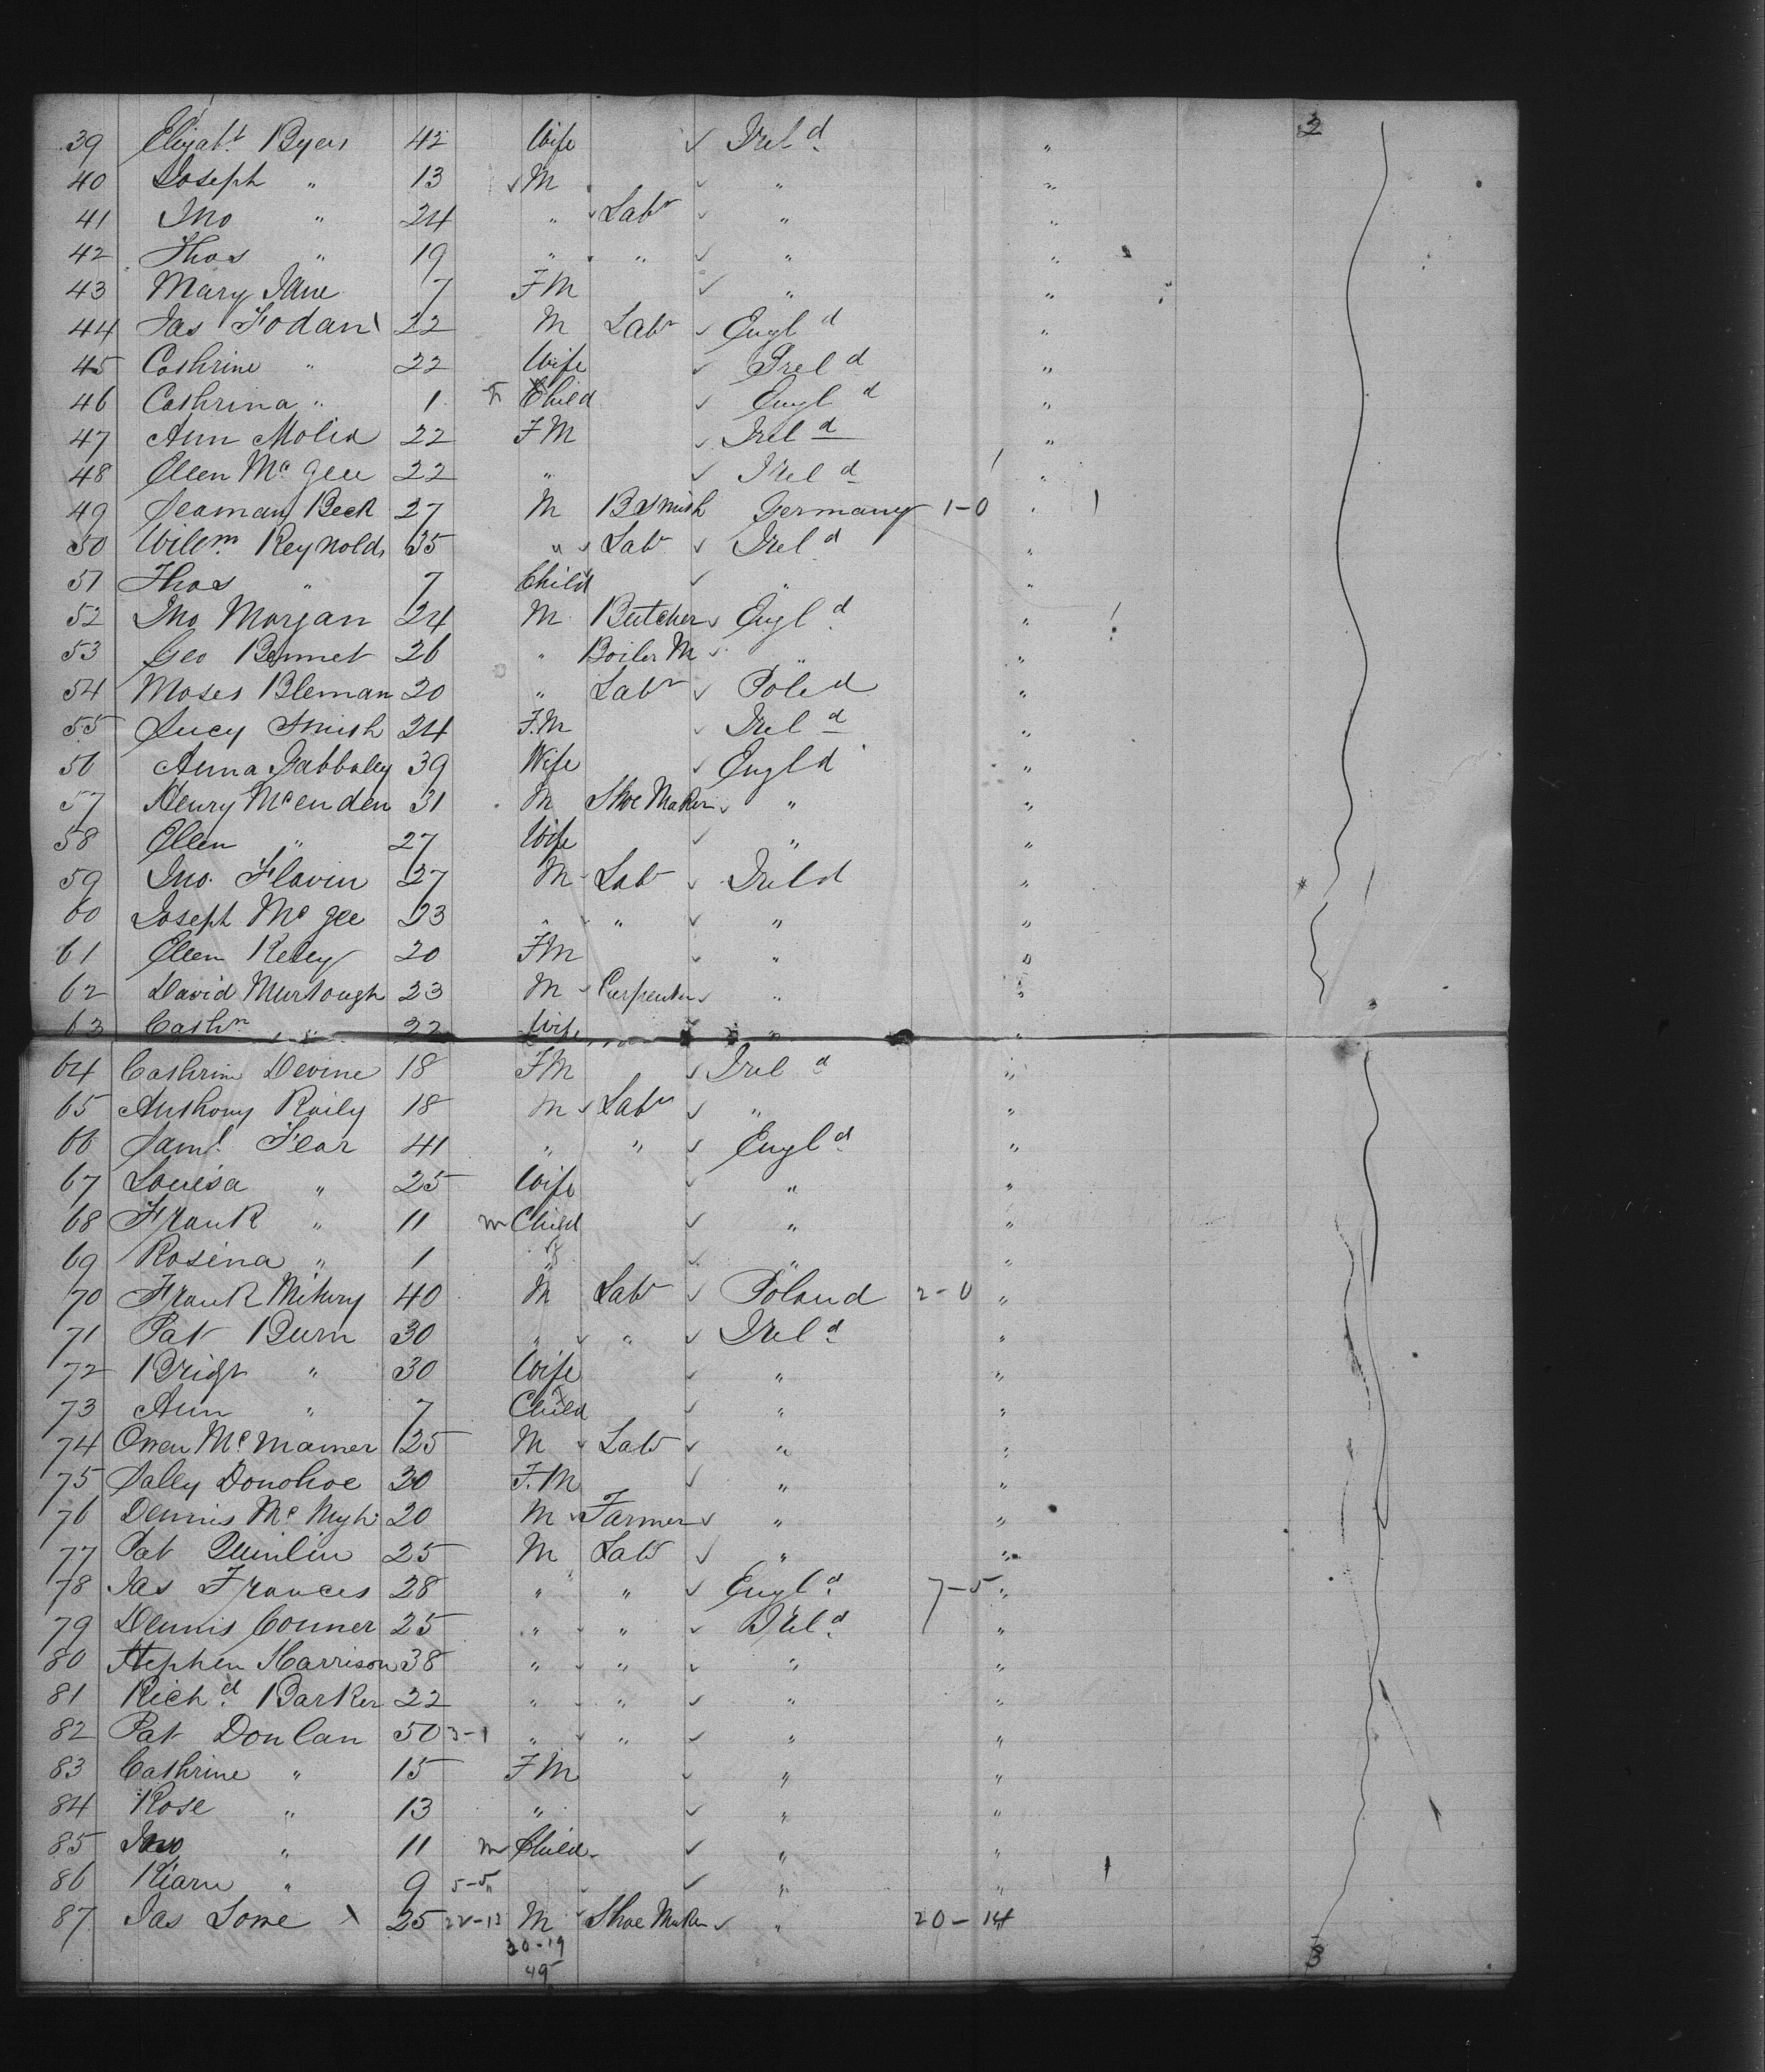 2
39 Elizabt. Byers 42 Wife ✓ Ireld "
40 Joseph " 13 ✓ M ✓ " "
41 Jno " 24 " ✓ Labr ✓ " "
42 Thos " 19 " " ✓ " "
43 Mary Jane 7 FM ✓ " "
44 Jas Fodan 22 M Labr ✓ Engld "
45 Cathrine " 22 Wife ✓ Ireld "
46 Cathrina " 1 F Child ✓ Engld "
47 Ann Molia 22 FM ✓ Ireld "
48 Ellen Mc Gee 22 " ✓ Ireld "
49 Seaman Beck 27 M B Smith Germany 1-0 "
50 Willm Reynolds 35 " ✓ Labr ✓ Ireld "
51 Thos " 7 Child ✓ " "
52 Jno Morgan 24 M Butcher ✓ Engld "
53 Geo Bennet 26 " Boiler M ✓ " "
54 Moses Bleman 20 " Labr ✓ Poled "
55 Lucy Smith 24 F.M ✓ Ireld "
56 Anna Jabbaley 39 Wife ✓ Engld "
57 Henry McEnden 31 M Shoe Maker ✓ " "
58 Ellen " 27 Wife ✓ " "
59 Jno. Flavin 27 M Labr ✓ Ireld "
60 Joseph Mc Gee 23 " ✓ " ✓ " "
61 Ellen Keley 20 FM ✓ " "
62 David Murtough 23 M ✓ Carpenter ✓ " "
63 Cathn " 22 Wife ✓ " "
64 Cathrine Devine 18 FM ✓ Ireld "
65 Anthony Raily 18 M ✓ Labr ✓ " "
66 Saml. Fear 41 " " ✓ Engld "
67 Louisa " 25 Wife ✓ " "
68 Frank " 11 m Child ✓ " "
69 Rosina " 1 " ✓ " "
70 Frank Mikury 40 M Labr ✓ Poland 2-0 "
71 Pat Burn 30 " ✓ " ✓ Ireld "
72 Bridgt " 30 Wife ✓ " "
73 Ann " 7 Child ✓ " "
74 Owen Mc Mamer 25 M ✓ Labr ✓ " "
75 Sally Donohoe 30 F.M ✓ " "
76 Dennis Mc Nugh 20 M ✓ Farmer ✓ " "
77 Pat Quinlin 25 M Labr ✓ " "
78 Jas Frances 28 " " ✓ Engld 7-5 "
79 Dennis Conner 25 " ✓ " ✓ Ireld "
80 Stephen Harrison 38 " ✓ " ✓ " "
81 Richd Barker 22 " ✓ " ✓ " "
82 Pat Donlan 50 3-1 " ✓ " ✓ " "
83 Cathrine " 15 FM ✓ " "
84 Rose " 13 " ✓ " "
85 Jno " 11 m Child ✓ " "
86 Kiarn " 9 5-5 ✓ ✓ " "
87 Jas Lowe X 25 22-13 M ✓ Shoe Maker ✓ " 20-14
30-19
49
3